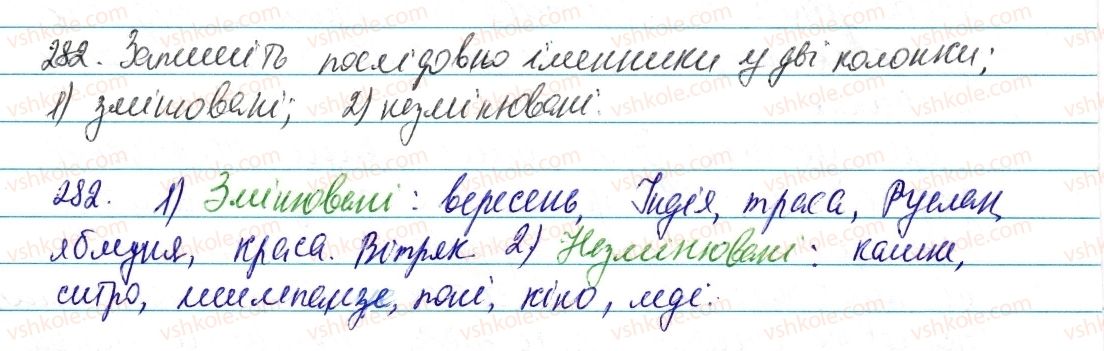 282. Запишіть послідовно іменники у дві колонки;
1) змінювані; 2) незмінювані.
282. 1) Змінювані: вересень, Індія, траса, Руслан,
яблуня, краса. Вітряк 2) Незмінювані: кашне,
ситро, шимпанзе, поні, кіно, журі.